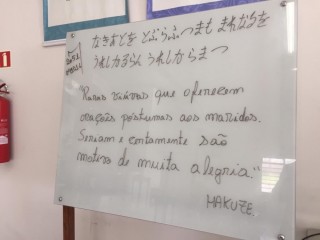 なきあとを とぶらふつまも まれなるを
うれしかるらん うれしからまつ
"Raras viúvas que oferecem
orações póstumas aos maridos.
Seriam e certamente são
motivo de muita alegria."
MAKUZE